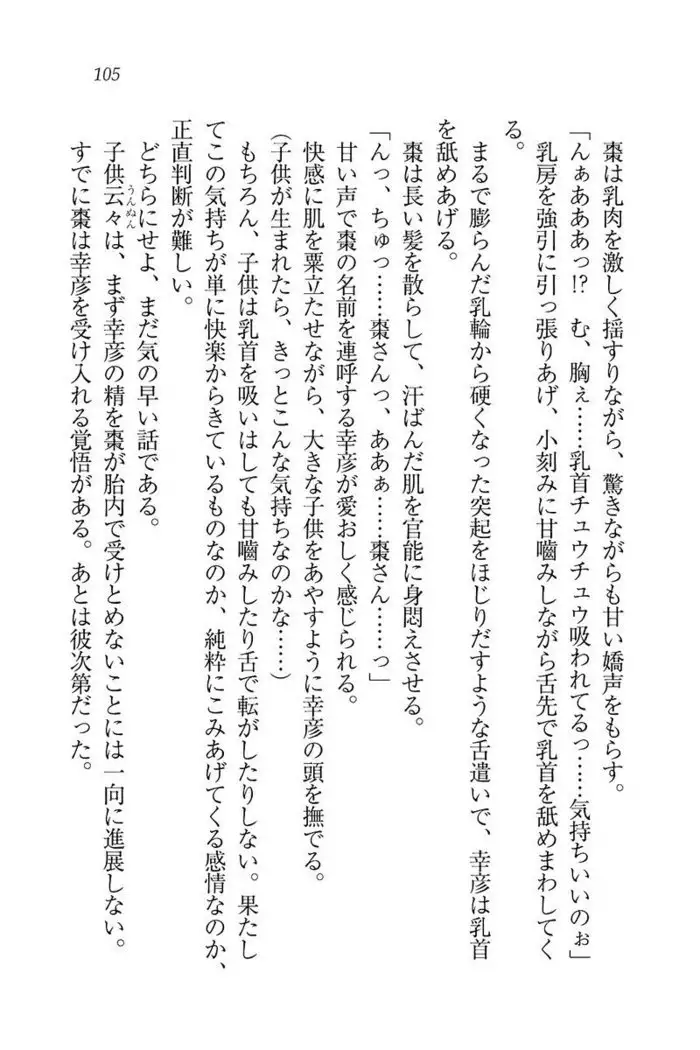 105
棗は乳肉を激しく揺すりながら、驚きながらも甘い嬌声をもらす。
「んぁあああっ!?　む、胸ぇ……乳首チュウチュウ吸われてるっ……気持ちいいのぉ」
乳房を強引に引っ張りあげ、小刻みに甘嚙みしながら舌先で乳首を舐めまわしてく
る。
まるで膨らんだ乳輪から硬くなった突起をほじりだすような舌遣いで、幸彦は乳首
を舐めあげる。
棗は長い髪を散らして、汗ばんだ肌を官能に身悶えさせる。
「んっ、ちゅっ……棗さんっ、ああぁ……棗さん……っ」
甘い声で棗の名前を連呼する幸彦が愛おしく感じられる。
快感に肌を粟立たせながら、大きな子供をあやすように幸彦の頭を撫でる。
(子供が生まれたら、きっとこんな気持ちなのかな……)
もちろん、子供は乳首を吸いはしても甘嚙みしたり舌で転がしたりしない。果たし
てこの気持ちが単に快楽からきているものなのか、純粋にこみあげてくる感情なのか、
正直判断が難しい。
どちらにせよ、まだ気の早い話である。
子供云々うんぬんは、まず幸彦の精を棗が胎内で受けとめないことには一向に進展しない。
すでに棗は幸彦を受け入れる覚悟がある。あとは彼次第だった。